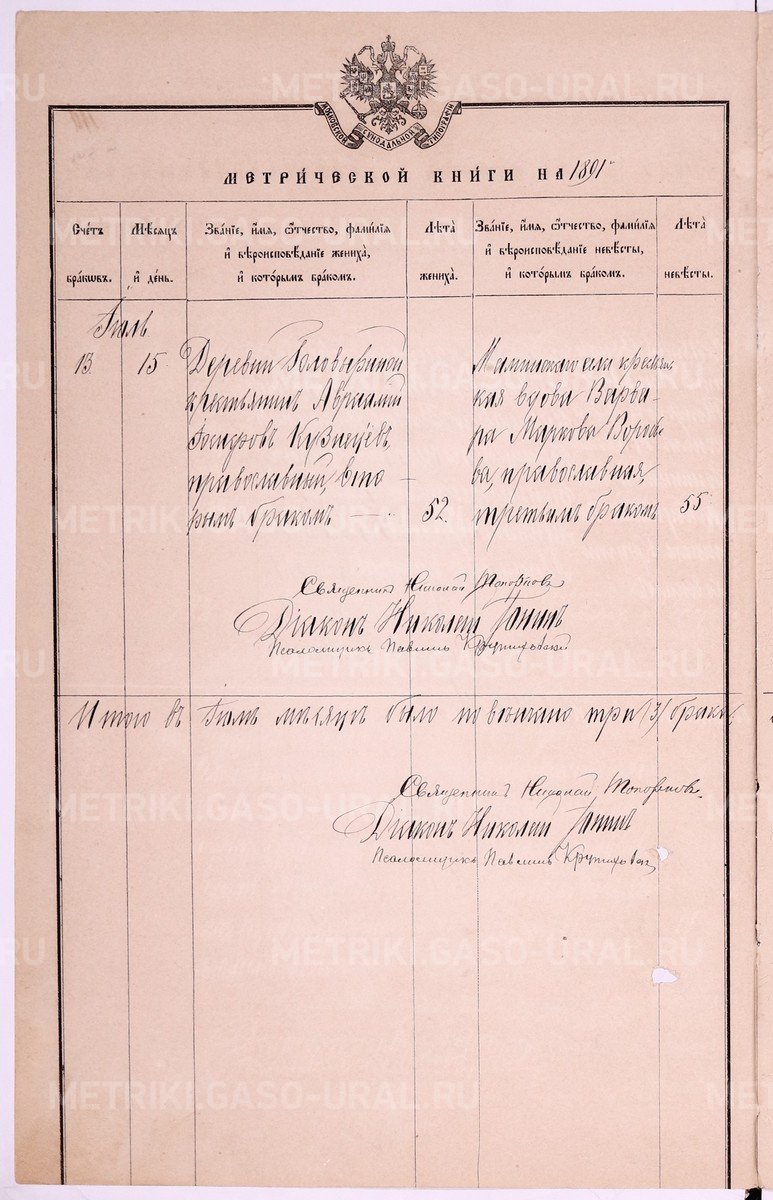 МОСКОВСКОЙ СѴНОДАЛЬНОЙ ТИПОГРАФІИ
МЕТРИ́ЧЕСКОЙ КНИ́ГИ НА 1891
Сче́тъ бра́кѡвъ.
Мѣ́сяцъ и҆ де́нь.
Зва́нїе, и҆́мѧ, ѻ҆́тчество, фамѝлїѧ и҆ вѣроисповѣ́данїе жениха̀, и҆ кото́рымъ бра́комъ.
Лѣ́та жениха̀.
Зва́нїе, и҆́мѧ, ѻ҆́тчество, фамѝлїѧ и҆ вѣроисповѣ́данїе невѣ́сты, и҆ кото́рымъ бра́комъ.
Лѣ́та невѣ́сты.
Іюль
13
15
Деревни Головыриной
крестьянинъ Авраамій
Кузнецовъ,
православный, вто-
рымъ бракомъ
52.
Маминскаго села крестьян-
ская вдова Варва-
ра Маркова Воробье-
ва, православная,
третьимъ бракомъ
55
Священникъ Николай Топорковъ
Діаконъ Николай Іонинъ
Псаломщикъ Павелъ Крутиховскій
Итого въ Іюлѣ мѣсяцѣ было повѣнчано три /3/ брака.
Священникъ Николай Топорковъ
Діаконъ Николай Іонинъ
Псаломщикъ Павелъ Крутиховскій
METRIKI.GASO-URAL.RU